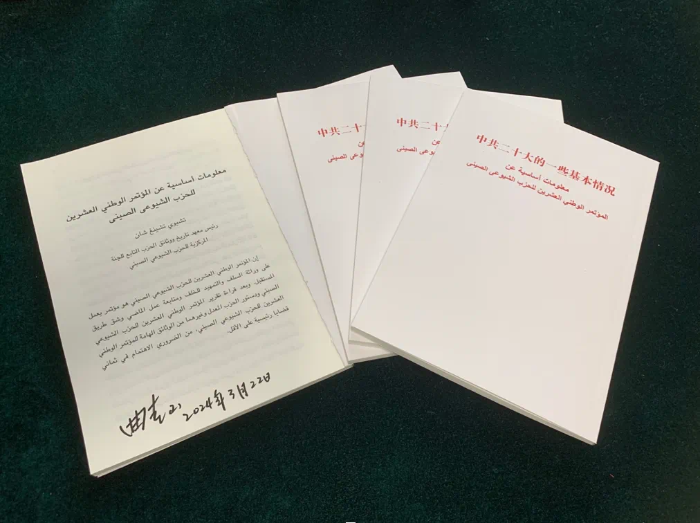 معلومات أساسية عن المؤتمر الوطني العشرين
للحزب الشيوعي الصيني
تشيوي تشينغ شان
رئيس معهد تاريخ ووثائق الحزب التابع للجنة
المركزية للحزب الشيوعي الصيني
إن المؤتمر الوطني العشرين للحزب الشيوعي الصيني هو مؤتمر يعمل
على وراثة السلف والتمهيد للخلف ومتابعة عمل الماضي وشق طريق
المستقبل. وبعد قراءة تقرير المؤتمر الوطني العشرين للحزب الشيوعي
الصيني ودستور الحزب المعدل وغيرهما من الوثائق الهامة للمؤتمر الوطني
العشرين للحزب الشيوعي الصيني، من الضروري الاهتمام في ثماني
قضايا رئيسية على الأقل.
曲青山 2024年3月22日
中共二十
الشيوعي الصيني
中共二十大
معلومات أساسية عن
للحزب الشيوعي الصيني
中共二十大的一些基本情况
معلومات أساسية عن
المؤتمر الوطني العشرين للحزب الشيوعي الصيني